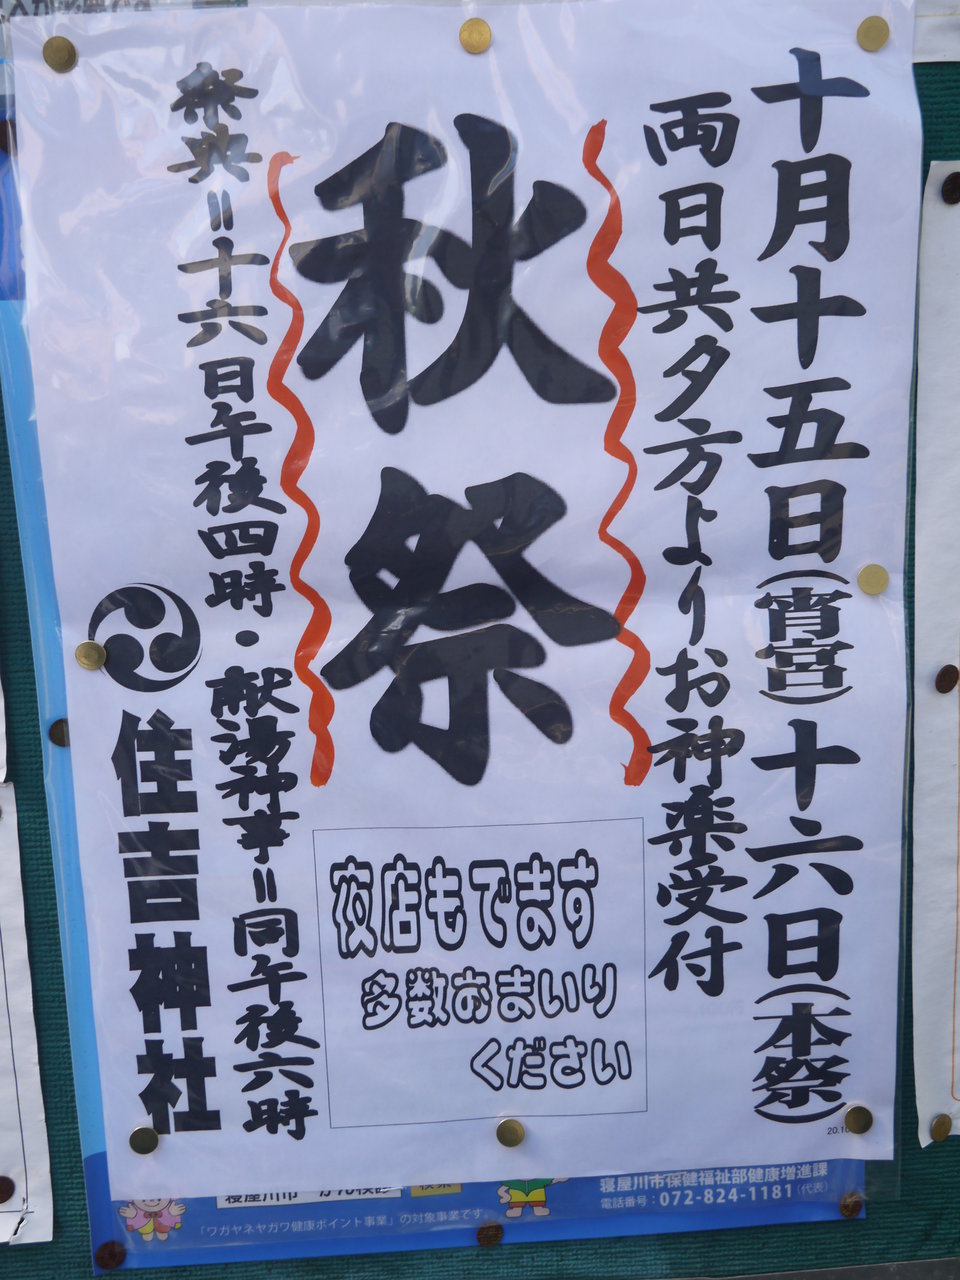 十月十五日(宵宮)十六日(本祭)
両日共夕方よりお神楽受付
秋祭
夜店もでます
多数おまいり
ください
祭典=十六日午後四時・献湯神事=同午後六時
住吉神社
20.10
寝屋川市 がん検診
検索
「ワガヤネヤガワ健康ポイント事業」の対象事業です。
寝屋川市保健福祉部健康増進課
電話番号:072-824-1181(代表)